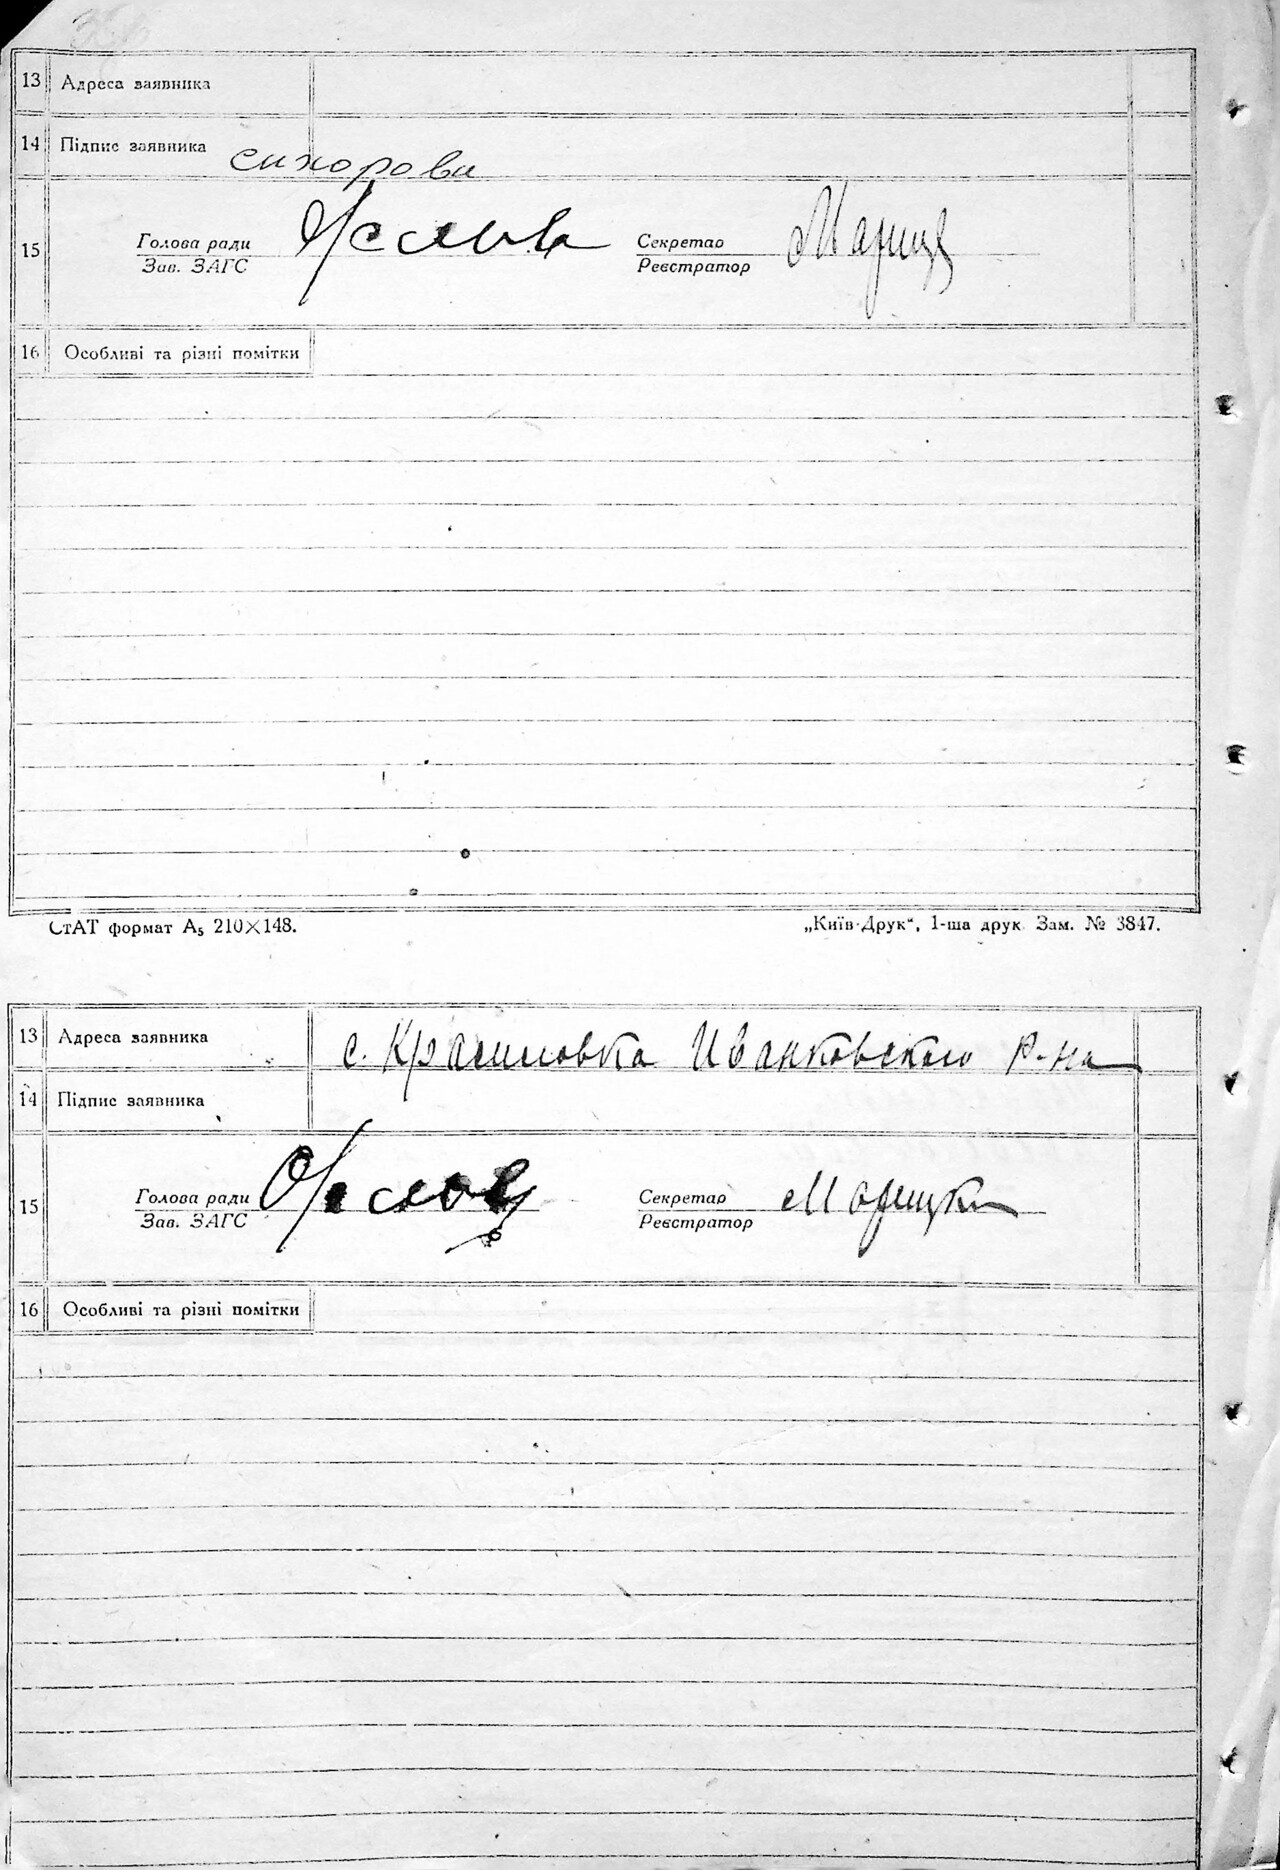 13 Адреса заявника
14 Підпис заявника
15 Голова ради Секретар
Зав. ЗАГС Реєстратор
16 Особливі та різні помітки
СтАТ формат А5 210×148. „Київ-Друк“, 1-ша друк. Зам. № 3847.
13 Адреса заявника с. Красиловка Иванковского р-на
14 Підпис заявника
15 Голова ради Секретар
Зав. ЗАГС Реєстратор
16 Особливі та різні помітки